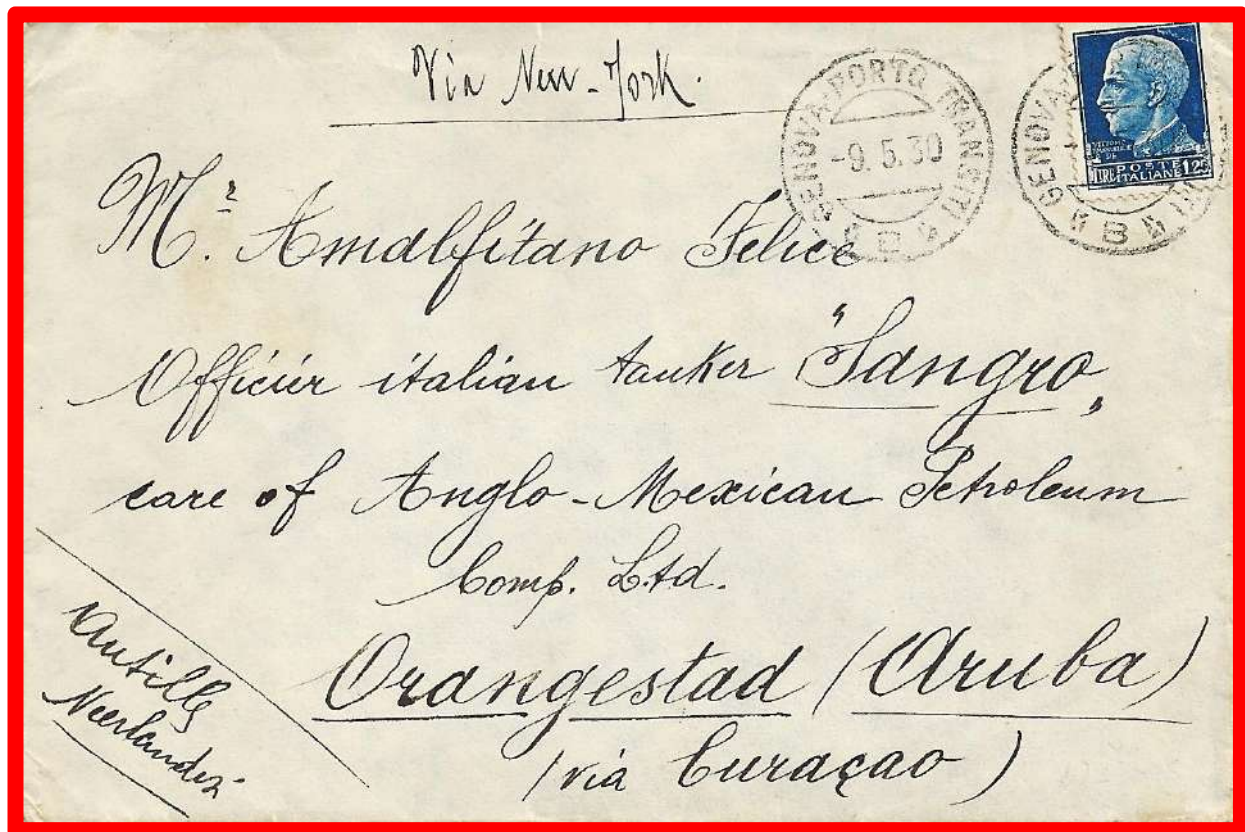 Via New-York.
GENOVA-PORTO TRANSITI
-9.5.30
B
GENOVA
B
POSTE
LIRE ITALIANE 1,25
Mr. Amalfitano Felice
Officier italian tanker "Sangro„
care of Anglo-Mexican Petroleum
Comp. Ltd.
Orangestad (Aruba)
(via Curaçao)
Antille
Neerlandesi